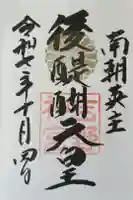 南朝英主
後醍醐天皇
令和七年十月四日